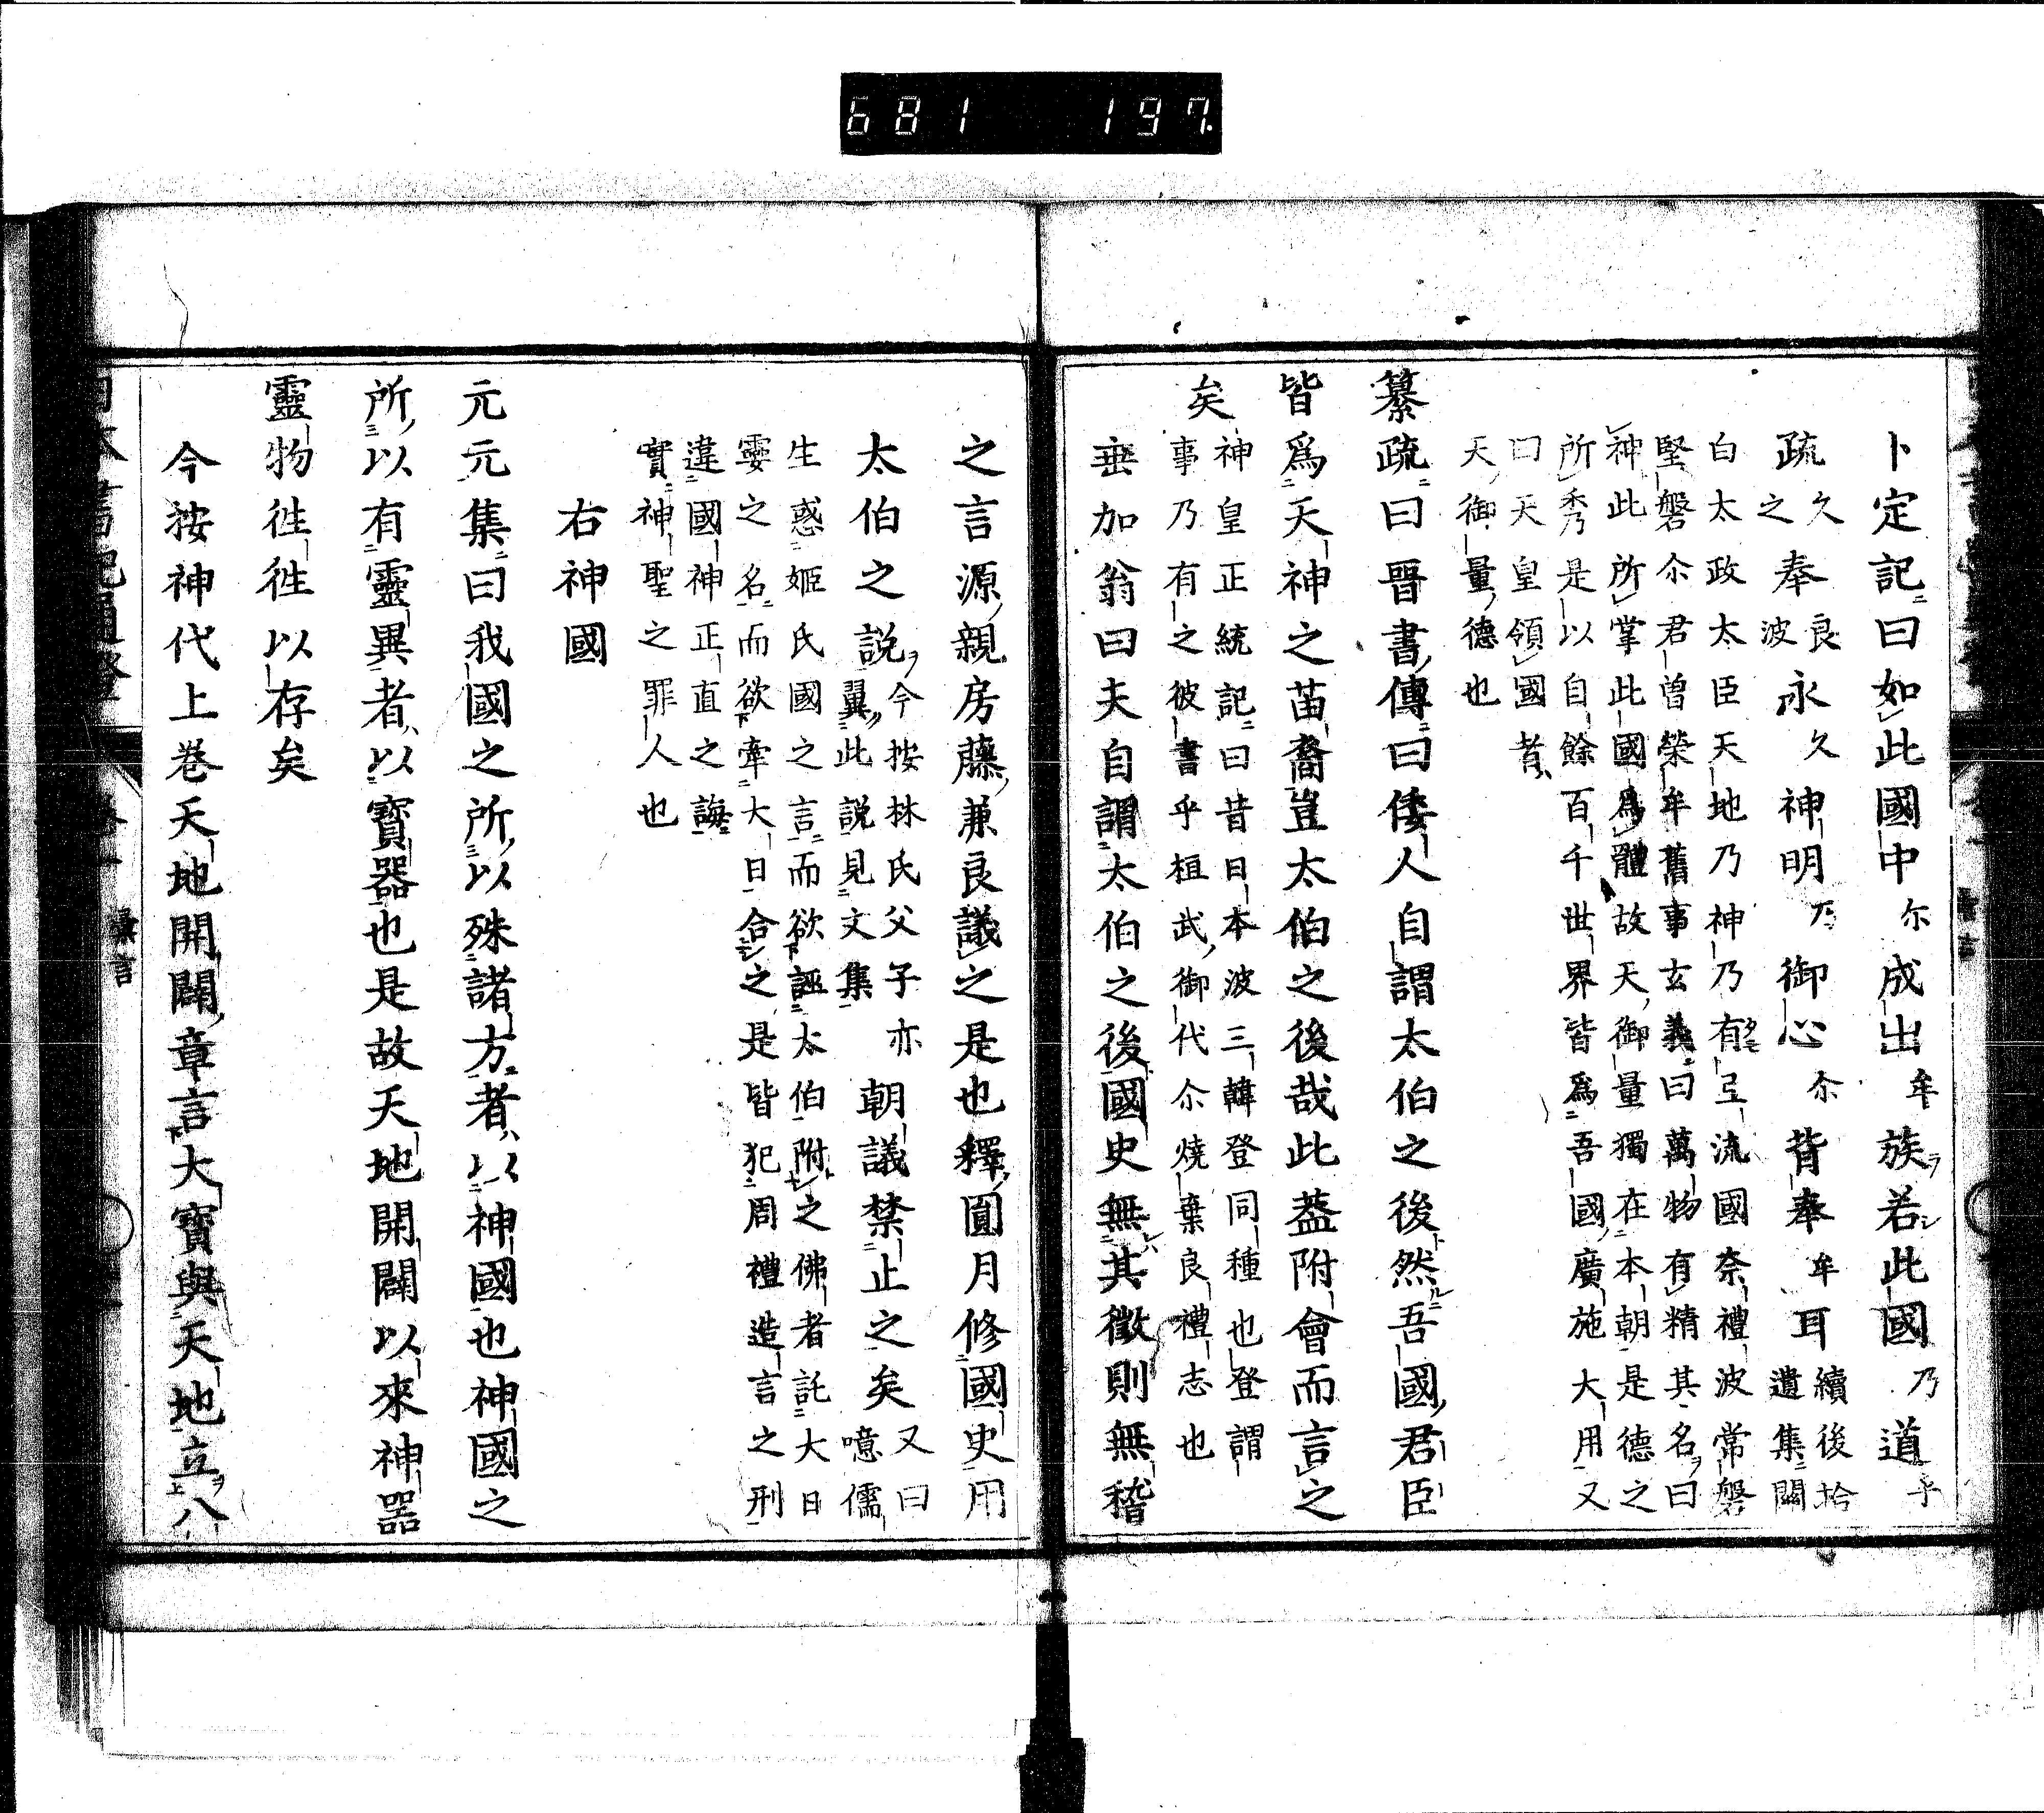 681 197.
卜定記曰如此國中尓成出牟族若此國乃道乎
疏久之奉良波永久神明乃御心尓背奉牟耳續後拾遺集關
白太政太臣天地乃神乃有弖流國奈禮波常磐
堅磐尓君曽榮牟舊事玄義曰萬物有精其名曰
神此所掌此國爲體故天御量獨在本朝是德之
所秀是以自餘百千世界皆爲吾國廣施大用又
曰天皇領國者
天御量德也
纂疏曰晉書傳曰倭人自謂太伯之後然吾國君臣
皆爲天神之苗裔豈太伯之後哉此葢附會而言之
矣神皇正統記曰昔日本波三韓登同種也登謂
事乃有之彼書乎桓武御代尓燒棄良禮志也
垂加翁曰夫自謂太伯之後國史無其徵則無稽
之言源親房藤兼良議之是也釋圓月修國史用
太伯之説今按林氏父子亦翼此説見文集朝議禁止之矣又曰噫儒
生惑姬氏國之言而欲誣太伯附之佛者託大日
孁之名而欲牽大日合之是皆犯周禮造言之刑
違國神正直之誨
實神聖之罪人也
右神國
元元集曰我國之所以殊諸方者以神國也神國之
所以有靈異者以寶器也是故天地開闢以來神器
靈物徃徃以存矣
今按神代上卷天地開闢章言大寶與天地立八
彙言